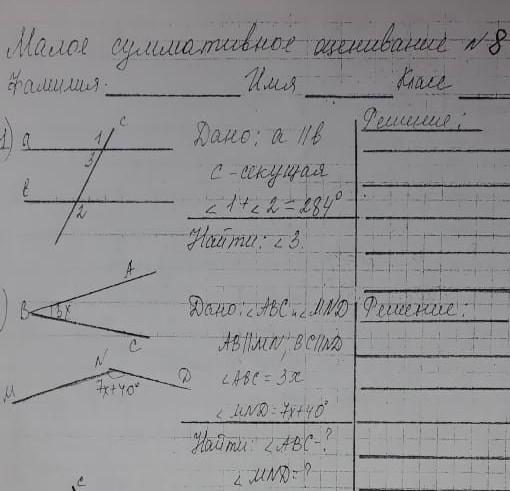 Малое суммативное оценивание №8
Фамилия Имя Класс
1)
a
b
c
1
3
2
Дано: a || b
c - секущая
∠1+∠2=284°
Найти: ∠3
Решение:
)
A
B
3x
C
M
N
D
7x+40°
Дано: ∠ABC и ∠MND
AB||MN; BC||ND
∠ABC = 3x
∠MND = 7x+40°
Найти: ∠ABC-?
∠MND=?
Решение:
c